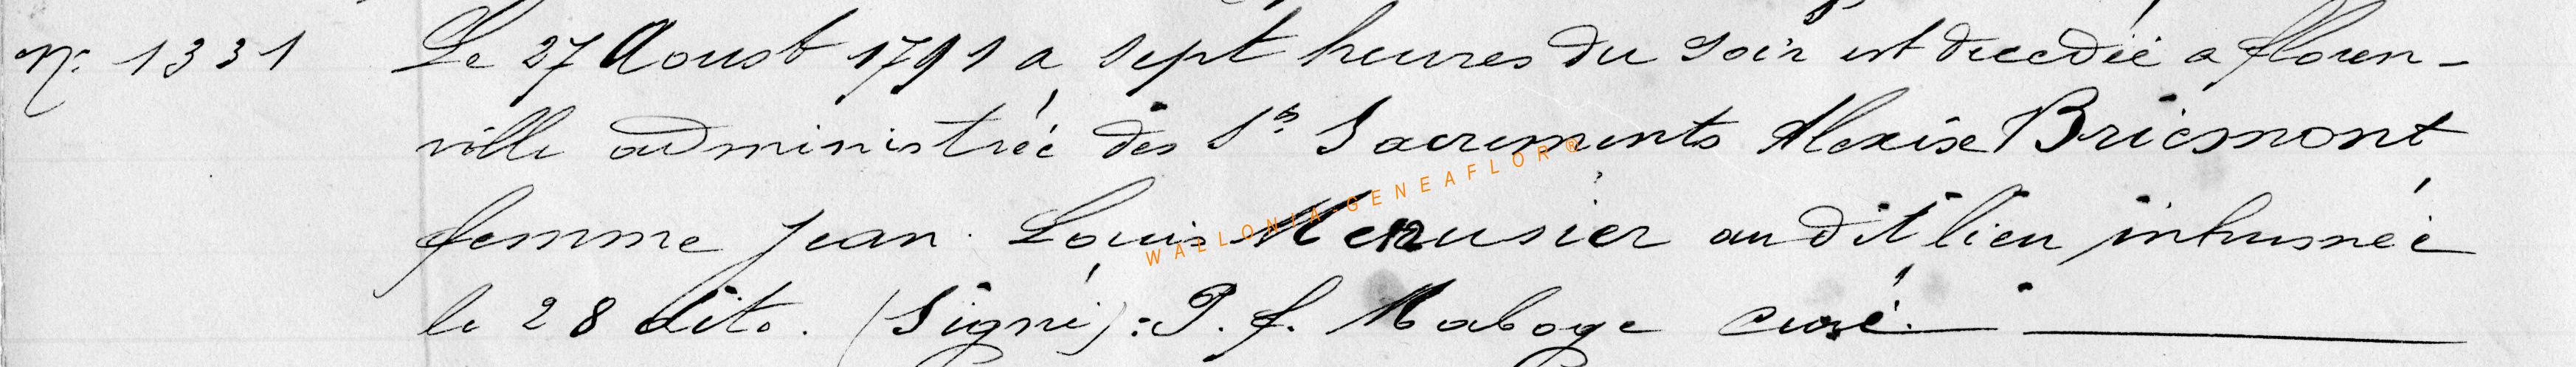 N.º 1331 Le 27 Aoust 1791 a sept heures du soir est decedée a floren-
ville administrée des S.ts Sacrements Alexise Briesmont
femme Jean Louis Menusier audit lieu inhumée
le 28 dito. (Signé): P. f. Maboge curé.
WALLONIA-GENEAFLOR®